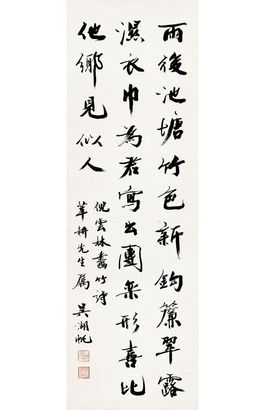 雨後池塘竹色新鈎簾翠露
濕衣巾為君寫出團欒形喜比
他鄉見似人
倪雲林畫竹詩
草耕先生屬 吳湖帆